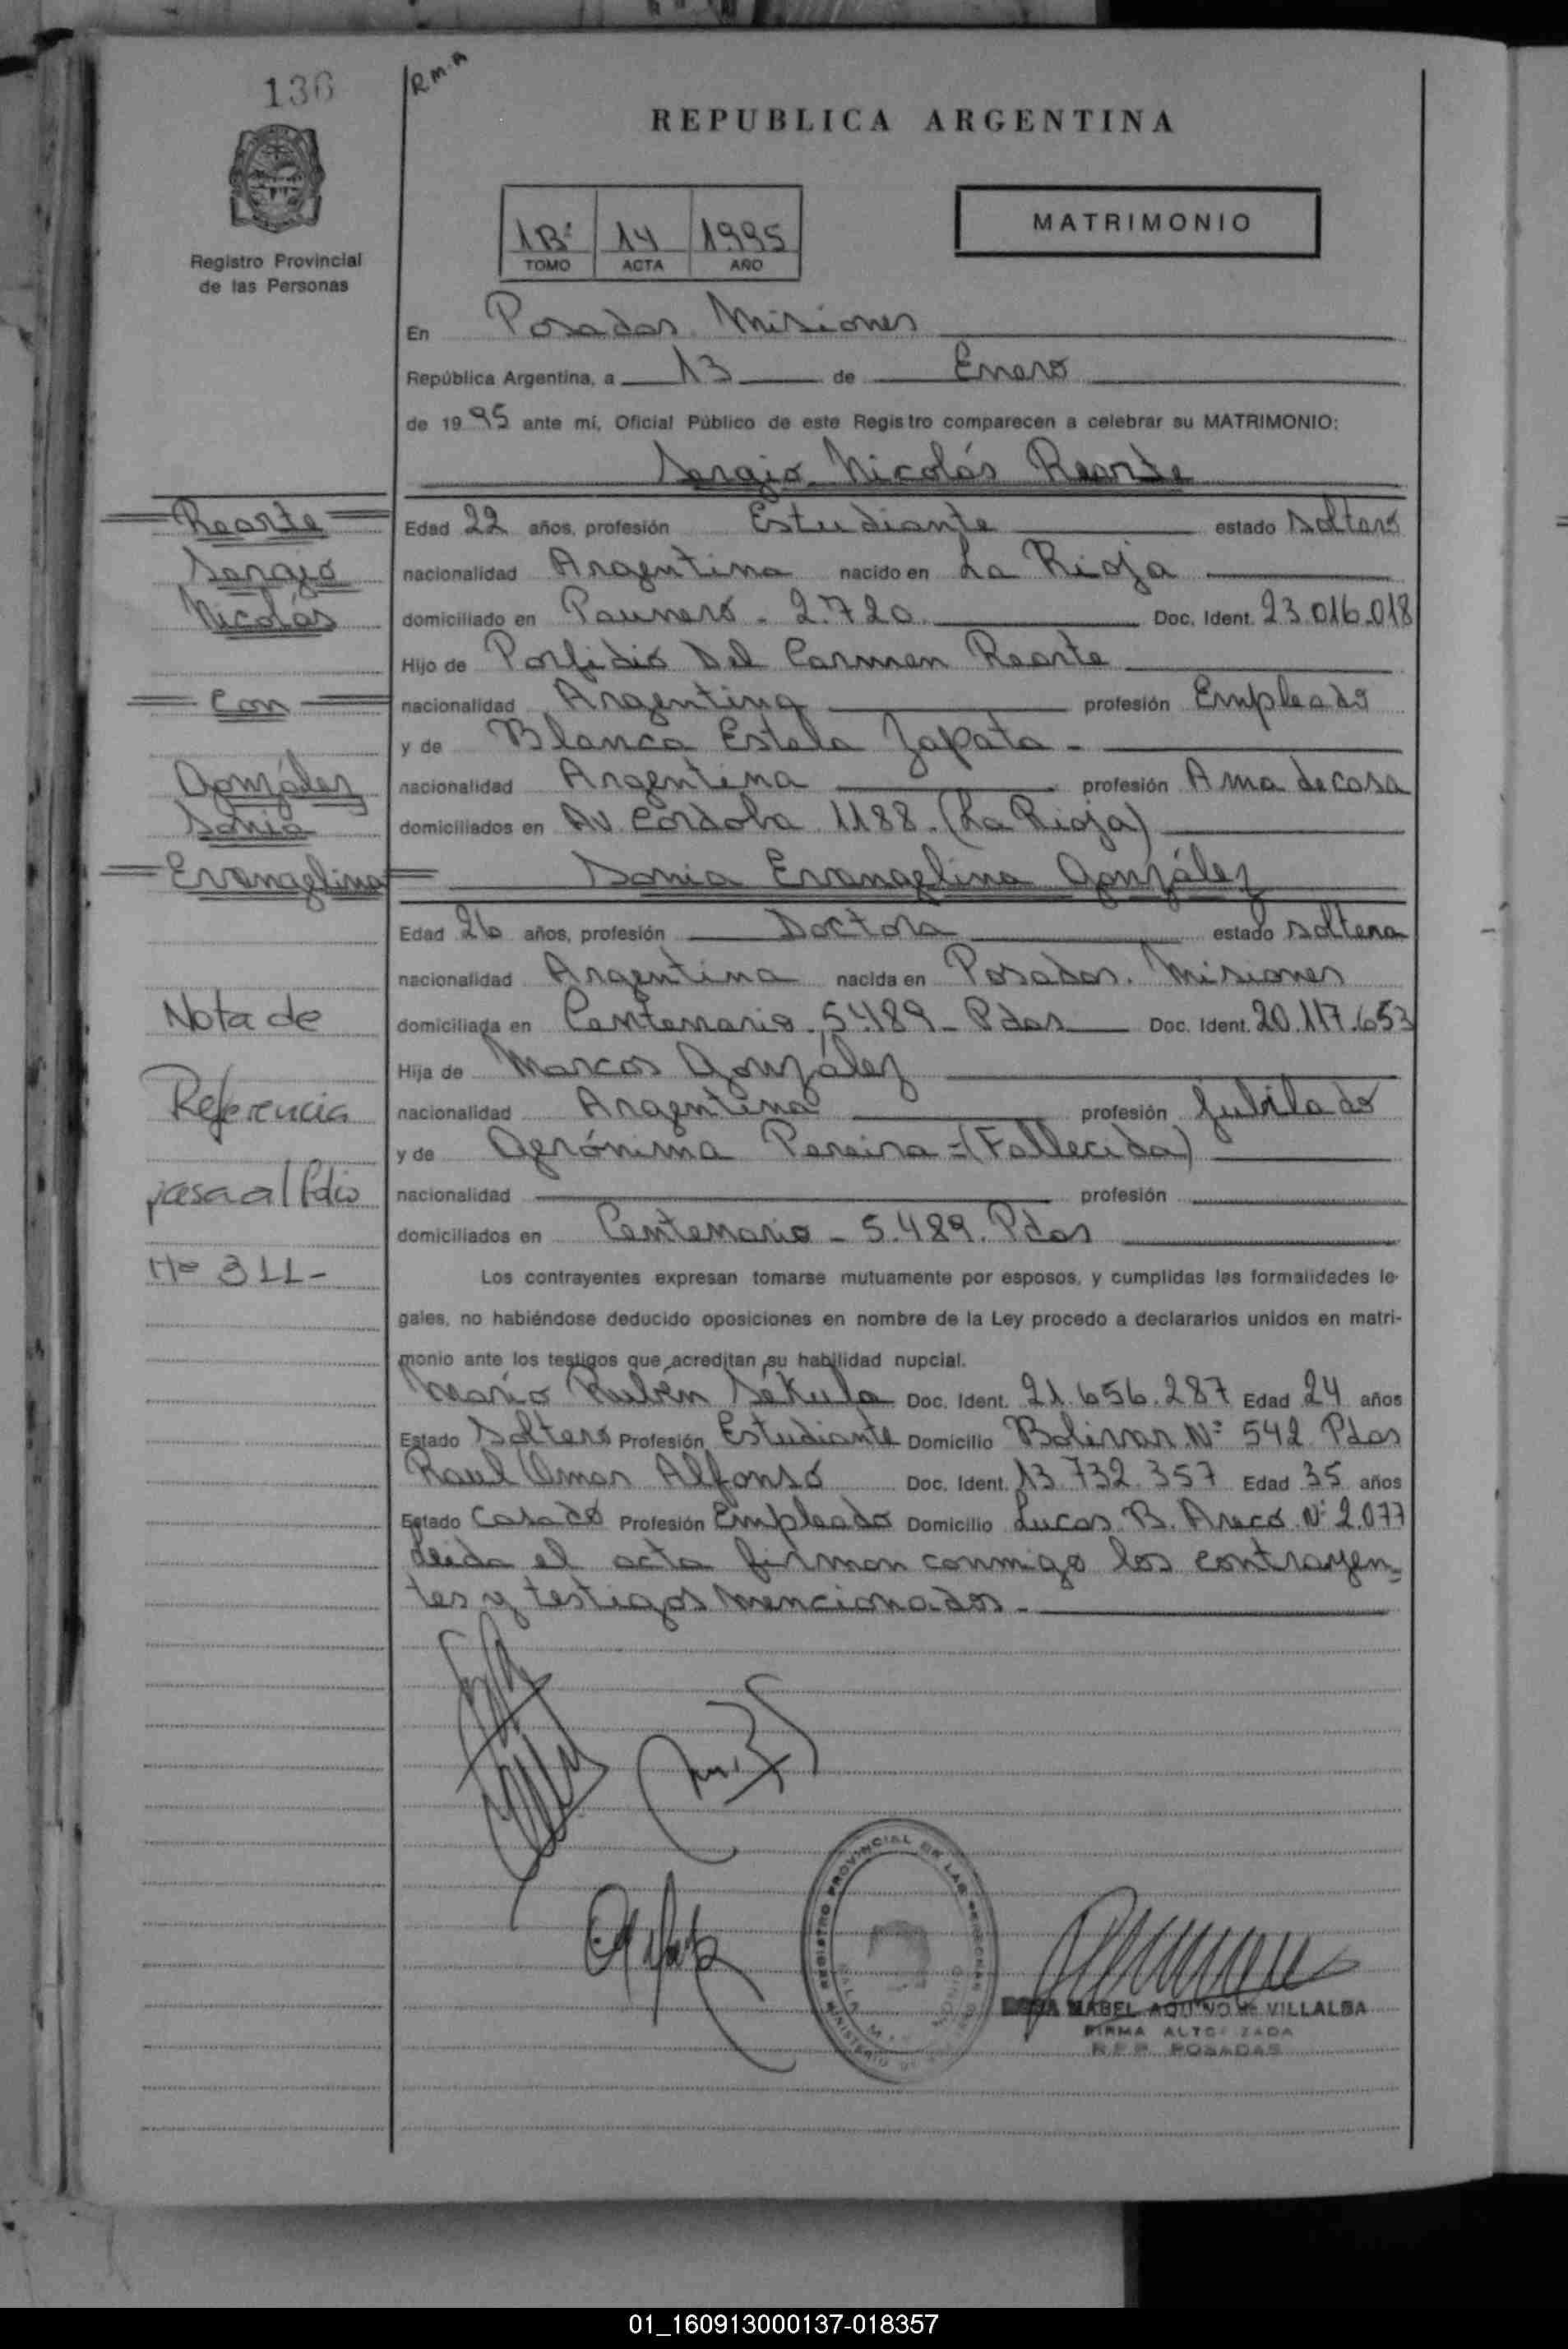 136
R.M.A
REPUBLICA ARGENTINA
1Bº 14 1995
TOMO ACTA AÑO
MATRIMONIO
Registro Provincial
de las Personas
En Posadas. Misiones
República Argentina, a 13 de Enero
de 1995 ante mí, Oficial Público de este Registro comparecen a celebrar su MATRIMONIO:
Sergio Nicolás Rearte
Rearte
Sergio
Nicolás
Con
González
Sonia
Evangelina
Nota de
Referencia
pasa al folio
Nº 311-
Edad 22 años, profesión Estudiante estado soltero
nacionalidad Argentina nacido en La Rioja
domiciliado en Paunero - 2.720 Doc. Ident. 23.016.018
Hijo de Porfidio Del Carmen Rearte
nacionalidad Argentina profesión Empleado
y de Blanca Estela Zapata -
nacionalidad Argentina profesión Ama de casa
domiciliados en Av. Córdoba 1188. (La Rioja)
Sonia Evangelina González
Edad 26 años, profesión Doctora estado soltera
nacionalidad Argentina nacida en Posadas. Misiones
domiciliada en Centenario. 5.489 - Pdas Doc. Ident. 20.117.653
Hija de Marcos González
nacionalidad Argentina profesión Jubilado
y de Gerónima Pereira = (Fallecida)
nacionalidad profesión
domiciliados en Centenario - 5.489. Pdas
Los contrayentes expresan tomarse mutuamente por esposos, y cumplidas las formalidades le-
gales, no habiéndose deducido oposiciones en nombre de la Ley procedo a declararlos unidos en matri-
monio ante los testigos que acreditan su habilidad nupcial.
Mario Rubén Sékula Doc. Ident. 21.656.287 Edad 24 años
Estado Soltero Profesión Estudiante Domicilio Bolívar Nº 542 Pdas
Raul Omar Alfonso Doc. Ident. 13.732.357 Edad 35 años
Estado Casado Profesión Empleado Domicilio Lucas B. Areco Nº 2.077
Leida el acta firman conmigo los contrayen=
tes y testigos mencionados -
REGISTRO PROVINCIAL DE LAS PERSONAS
MINISTERIO DE
MABEL AQUINO de VILLALBA
FIRMA AUTORIZADA
R.P.P. POSADAS
01_160913000137-018357